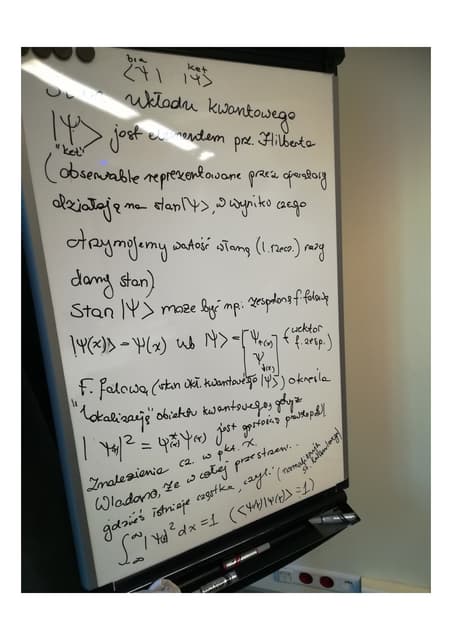 bra ket
⟨Ψ| |Ψ⟩
układu kwantowego
|Ψ⟩ jest elementem prz. Hilberta
"ket"
(obserwable reprezentowane przez operatory
działają na stan |Ψ⟩, w wyniku czego
otrzymujemy wartość własną (l. rzecz.) razy
damy stan)
Stan |Ψ⟩ może być np. zespoloną f. falową
|Ψ(x)⟩ = Ψ(x) lub |Ψ⟩ = [Ψ↑(x) Ψ↓(x)] (wektor f. zesp.)
F. falowa (stan ukł. kwantowego |Ψ⟩) określa
"lokalizację" obiektu kwantowego, gdyż
|Ψ(x)|² = Ψ*(x)Ψ(x) jest gęstością prawdopod.
Znalezienia cz. w pkt. x.
Wiadomo, że w całej przestrzeni...
gdzieś istnieje cząstka, czyli (normalizacja st. kwantowego)
∫_{-∞}^{∞} |Ψ(x)|² dx = 1 (⟨Ψ(x)|Ψ(x)⟩ = 1)